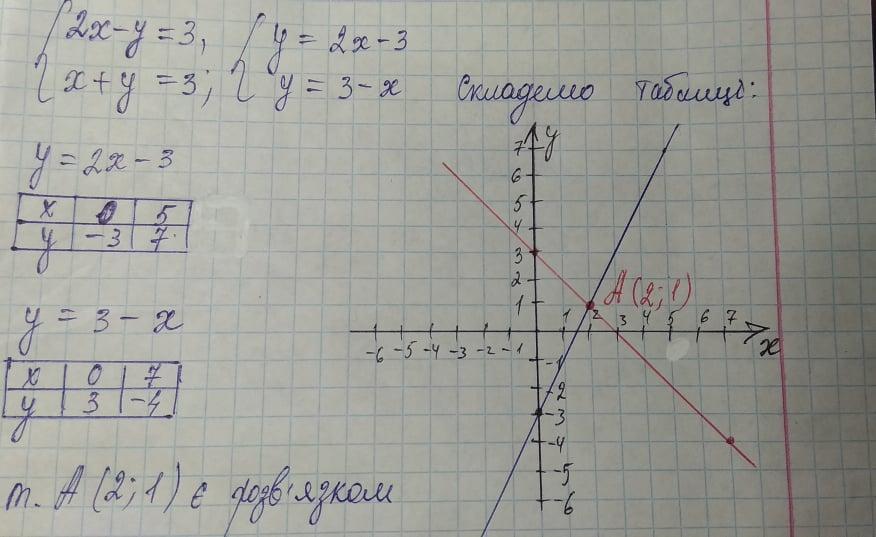 { 2x-y=3, { y = 2x-3
{ x+y=3; { y = 3-x Складемо таблиці:
y = 2x-3
x 0 5
y -3 7
y = 3-x
x 0 7
y 3 -4
т. А(2;1) є розв'язком
y
7
6
5
4
3
2
1
А(2;1)
-6 -5 -4 -3 -2 -1 1 2 3 4 5 6 7
x
-1
-2
-3
-4
-5
-6